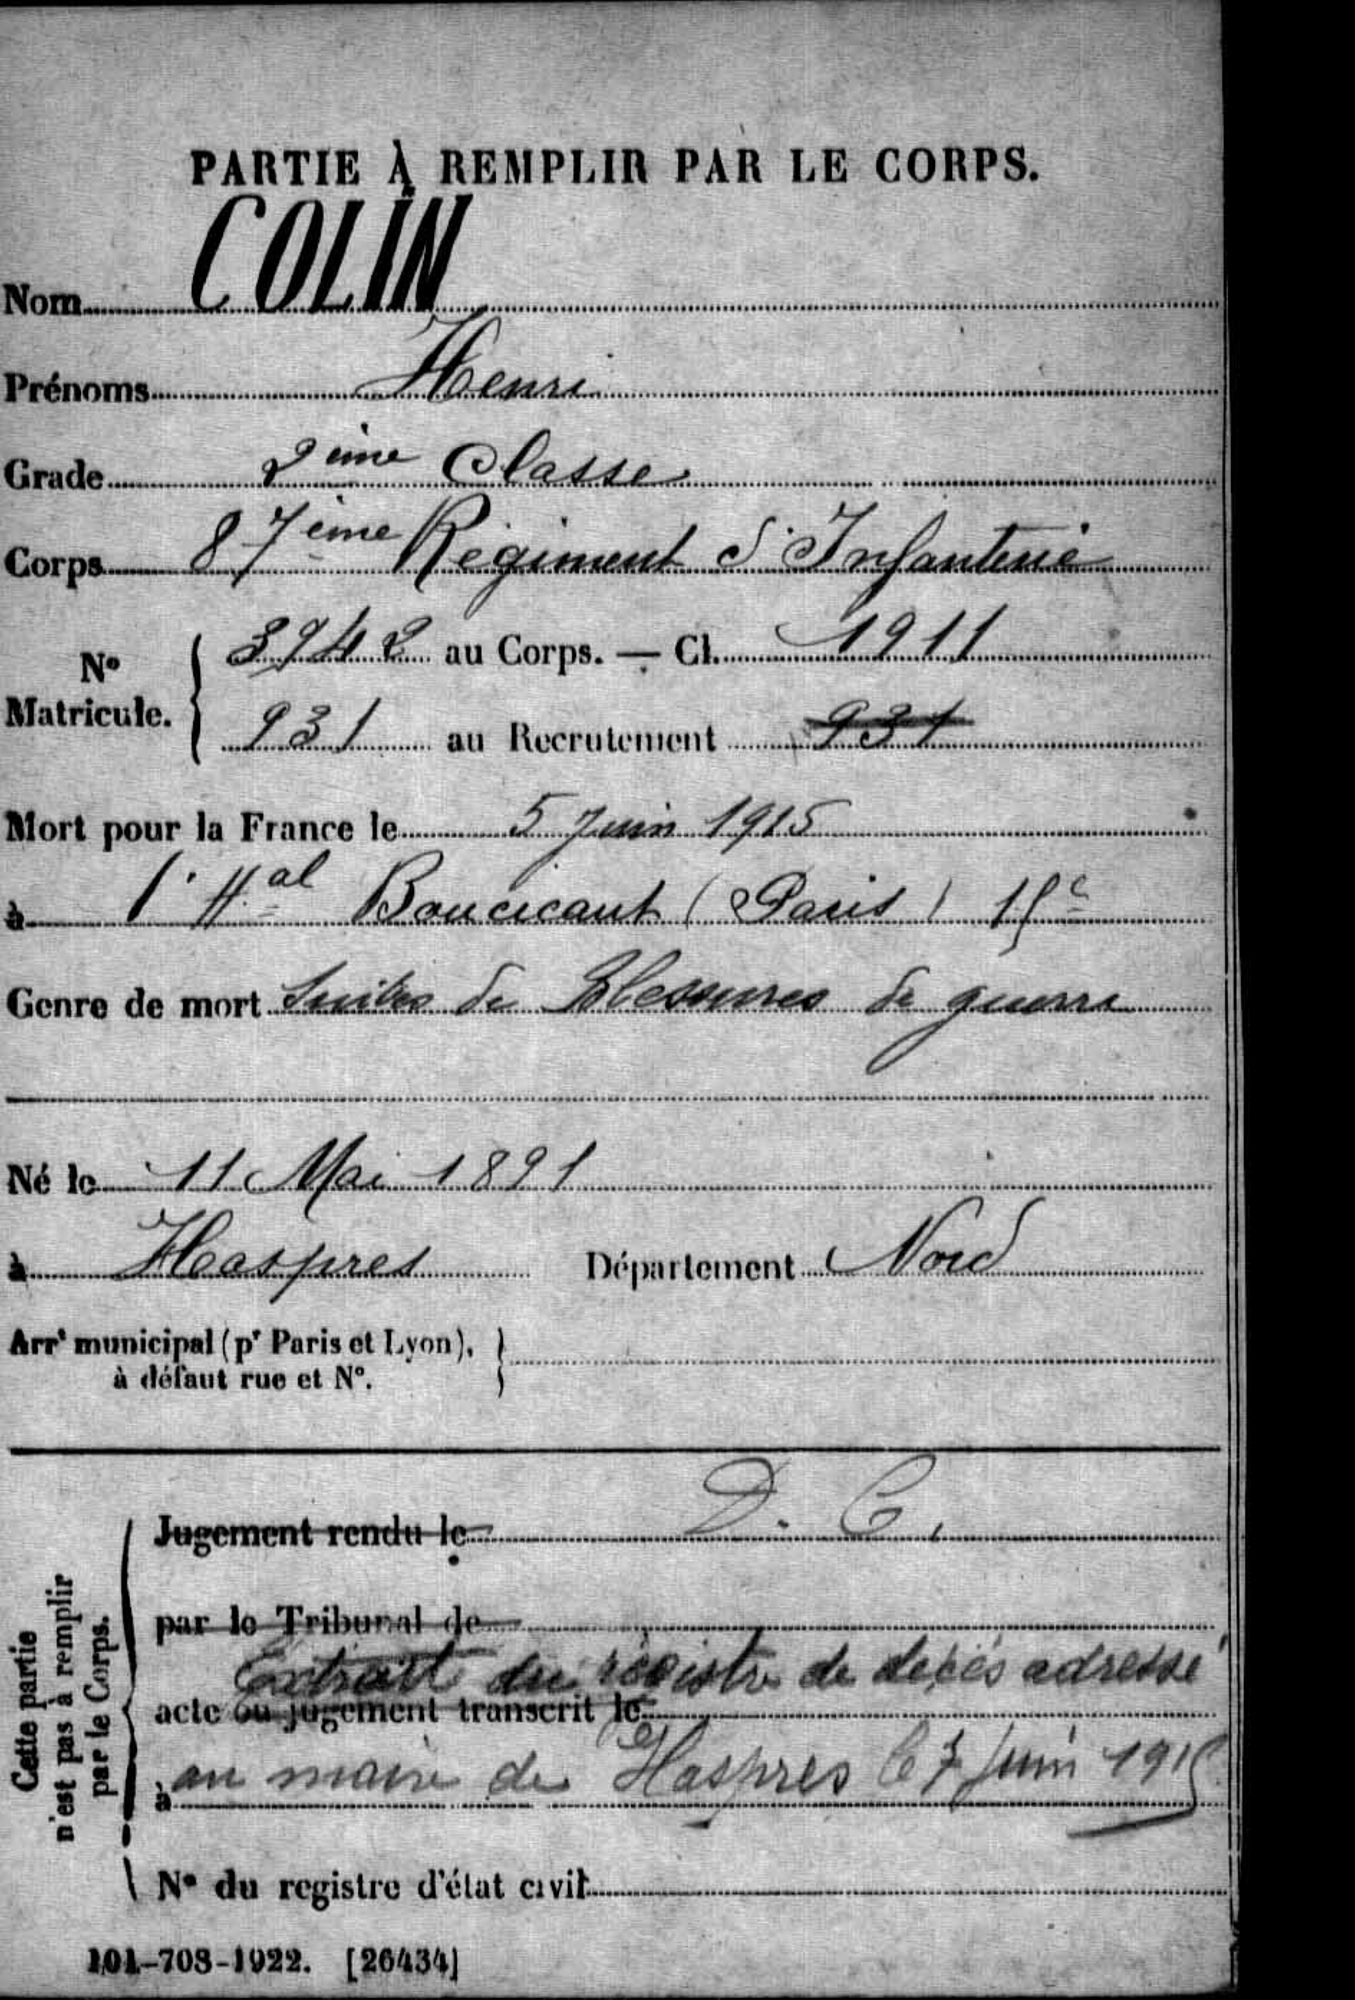 PARTIE À REMPLIR PAR LE CORPS.
Nom COLIN
Prénoms Henri
Grade 2ème Classe
Corps 87ème Régiment d'Infanterie
N° Matricule. { 3942 au Corps. — Cl. 1911
931 au Recrutement 931
Mort pour la France le 5 Juin 1915
à l'Hal Boucicaut (Paris) 15e
Genre de mort Suites de Blessures de guerre
Né le 11 Mai 1891
à Haspres Département Nord
Arrt municipal (pr Paris et Lyon), à défaut rue et N°.
Cette partie n'est pas à remplir par le Corps.
Jugement rendu le D. C.
par le Tribunal de
Extrait du registre de décès adressé
acte ou jugement transcrit le
à au maire de Haspres le 7 Juin 1915
N° du registre d'état civil
101-708-1922. [26434]